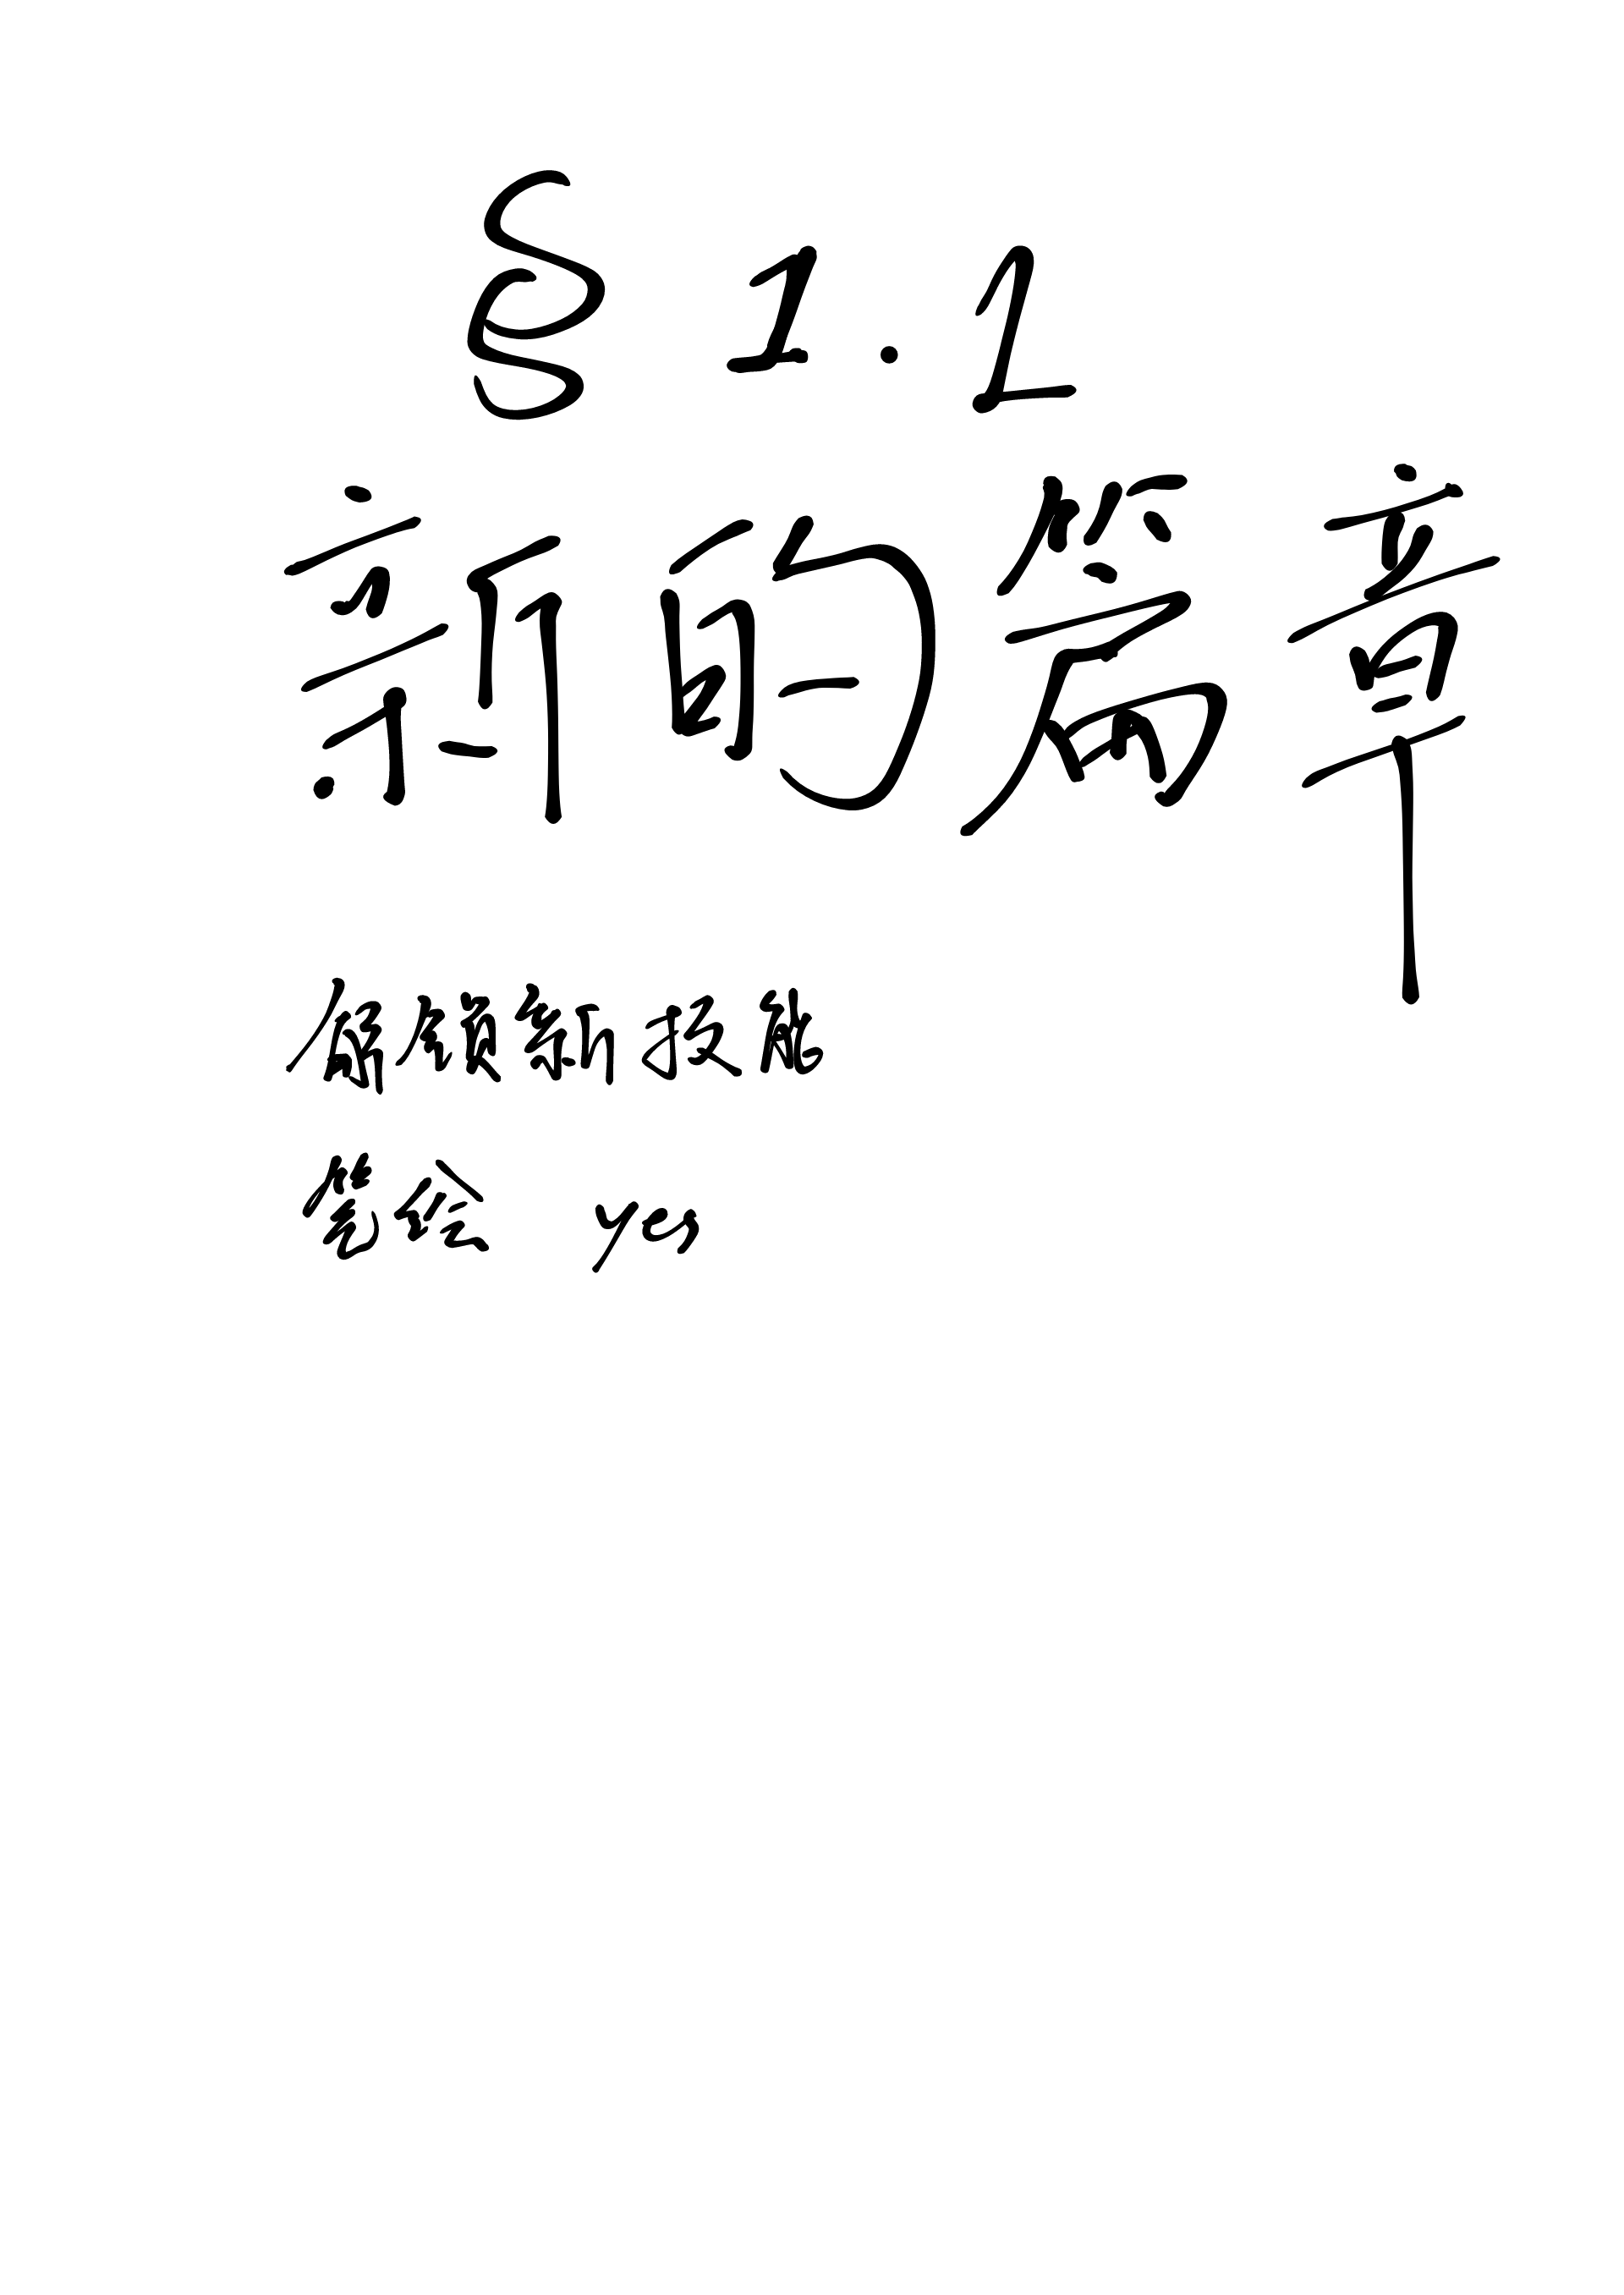 § 1.1
新的篇章
解锁新技能
笔绘 yes